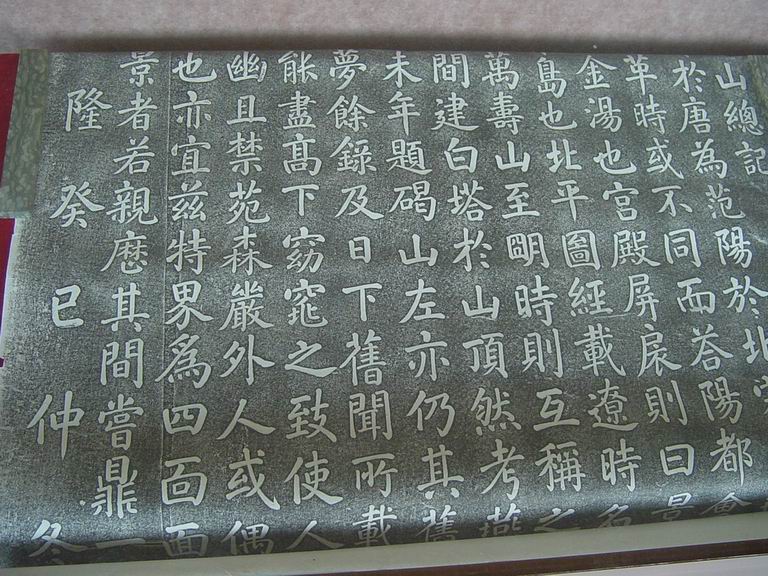 山總記
於唐為范陽於北
革時或不同而荅陽都會
金湯也宮殿屏扆則曰景
島也北平圖經載遼時名
萬壽山至明時則互稱之
間建白塔於山頂然考燕
未年題碣山左亦仍其舊
夢餘錄及日下舊聞所載
能盡髙下窈窕之致使人
幽且禁苑森嚴外人或偶
也亦宜茲特界為四靣面
景者若親歷其間嘗鼎一
隆癸巳仲冬